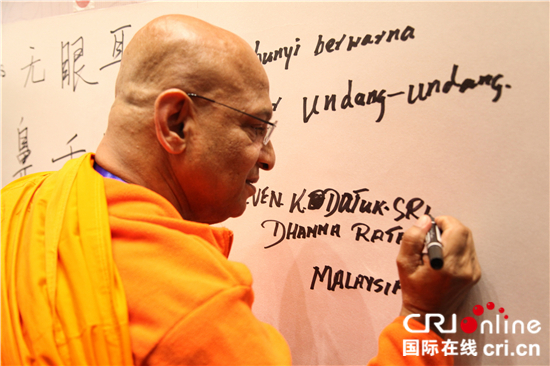 无眼耳 bunyi berwarna
鼻 undang-undang.
VEN K. DATUK. SRI
DHAMMA
MALAYSIA
CRI online
国际在线 cri.cn